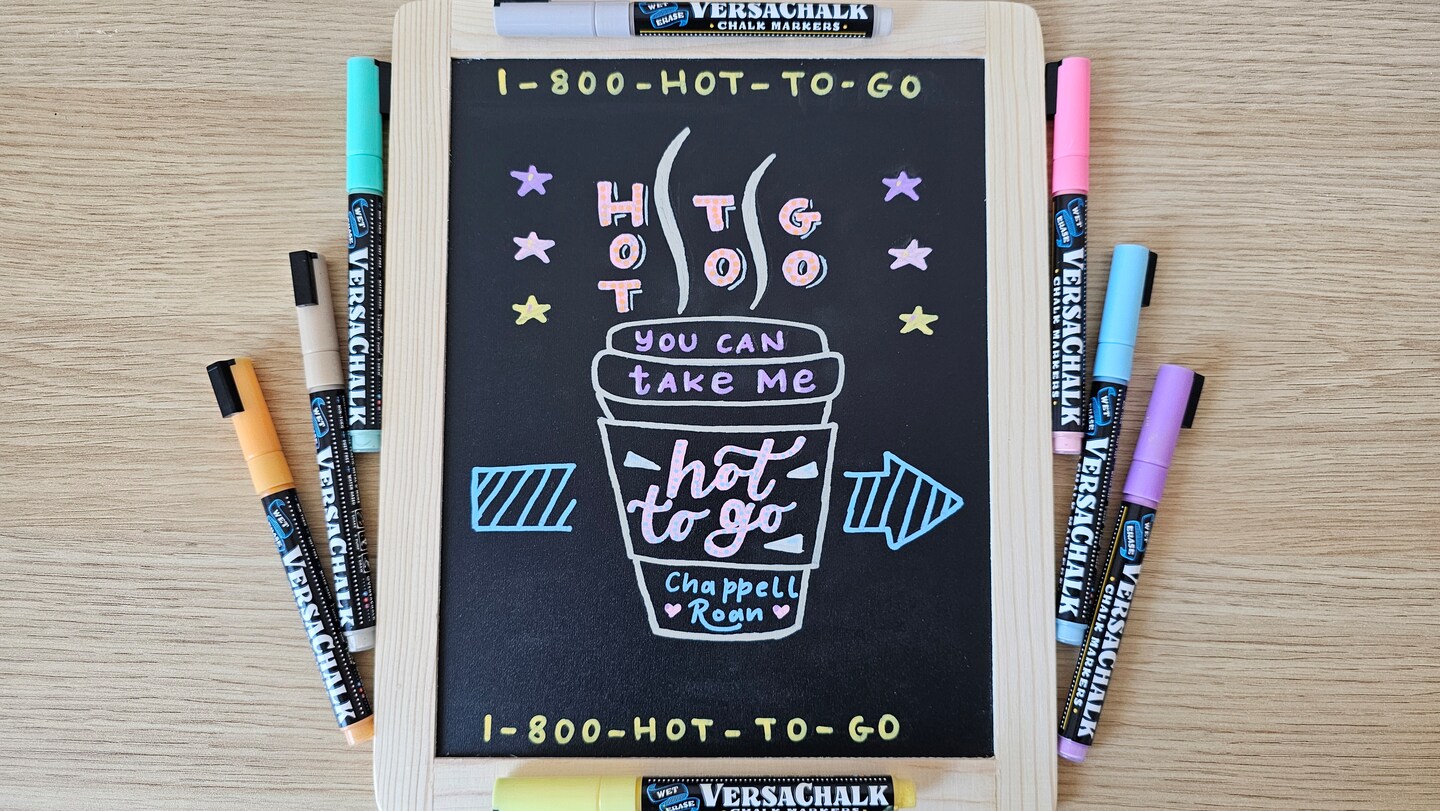 WET ERASE VERSACHALK
CHALK MARKERS
1-800-HOT-TO-GO
HOT TO GO
YOU CAN
tAKe Me
hot
to go
Chappell
Roan
1-800-HOT-TO-GO
WET ERASE VERSACHALK
CHALK MARKERS
VERSACHALK
WET ERASE VERSACHALK
WET ERASE VERSACHALK
WET ERASE VERSACHALK
CHALK MARKERS
WET ERASE VERSACHALK
WET ERASE VERSACHALK
CHALK MARKERS